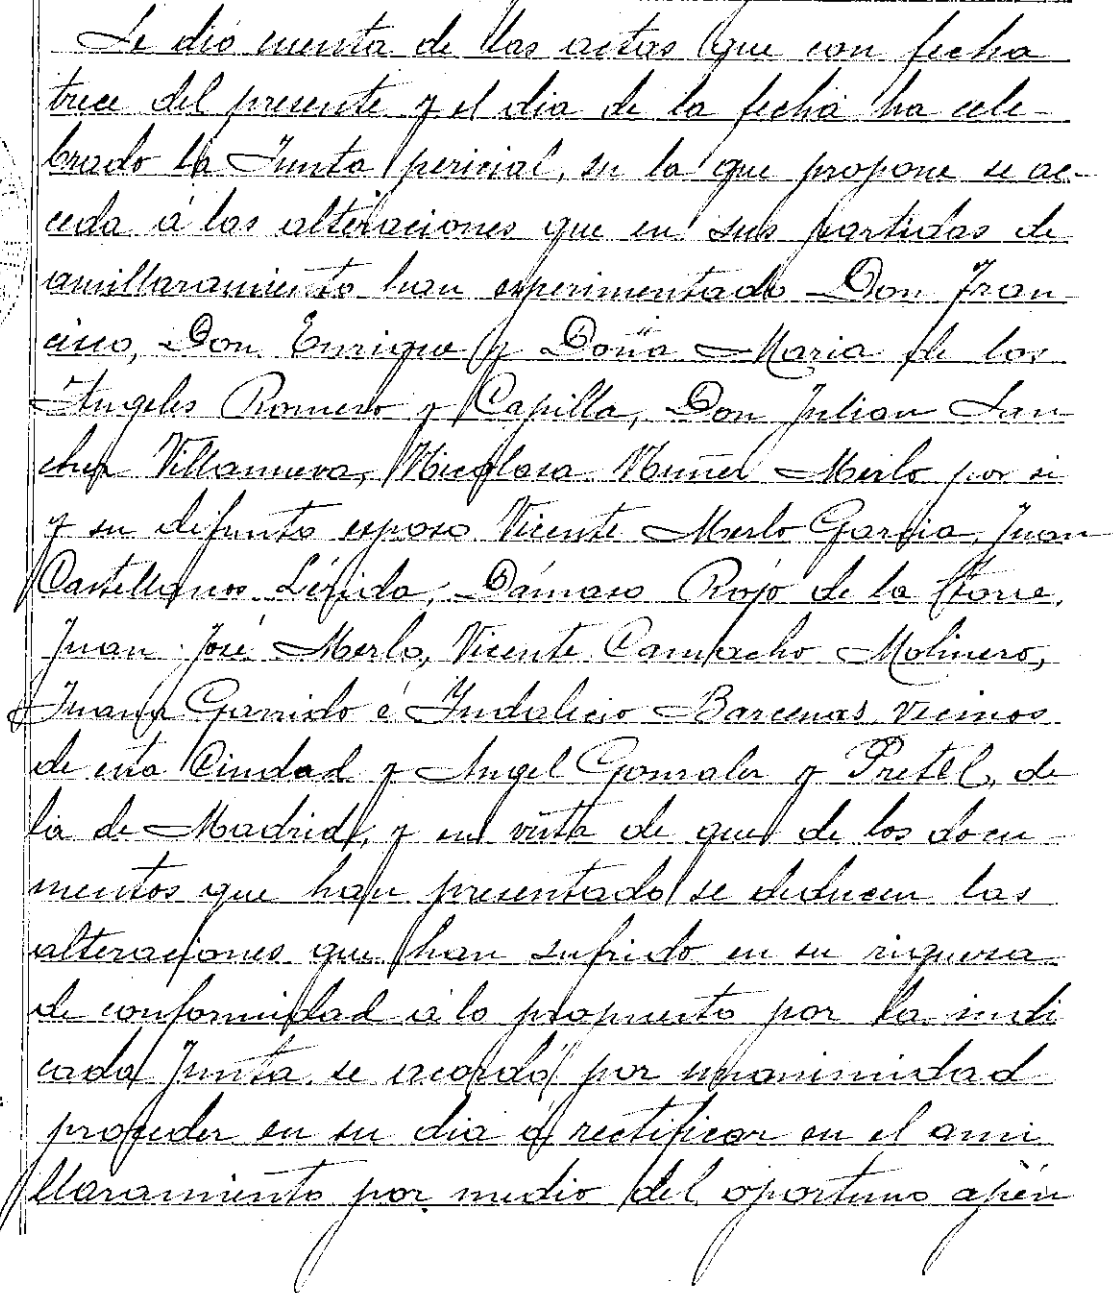 Se dió cuenta de las actas que con fecha
trece del presente y el dia de la fecha ha cele-
brado la Junta pericial, en la que propone se ac-
ceda á las alteraciones que en sus partidas de
amillaramiento han experimentado Don Fran-
cisco, Don Enrique y Doña Maria de los
Angeles Romero y Capilla, Don Julian San
chez Villanueva, Nicolasa Nuñez Merlo por si
y su difunto esposo Vicente Merlo Garcia, Juan
Castellanos Lérida, Dámaso Rojo de la Torre,
Juan José Merlo, Vicente Camacho Molinero,
Juana Garrido é Indalecio Barcenas vecinos
de esta Ciudad y Angel Gonzalez y Pretel, de
la de Madrid, y en vista de que de los docu-
mentos que han presentado se deducen las
alteraciones que han sufrido en su riqueza
de conformidad á lo propuesto por la indi
cada Junta se acordó por unanimidad
proceder en su dia á rectificar en el ami
llaramiento por medio del oportuno apén